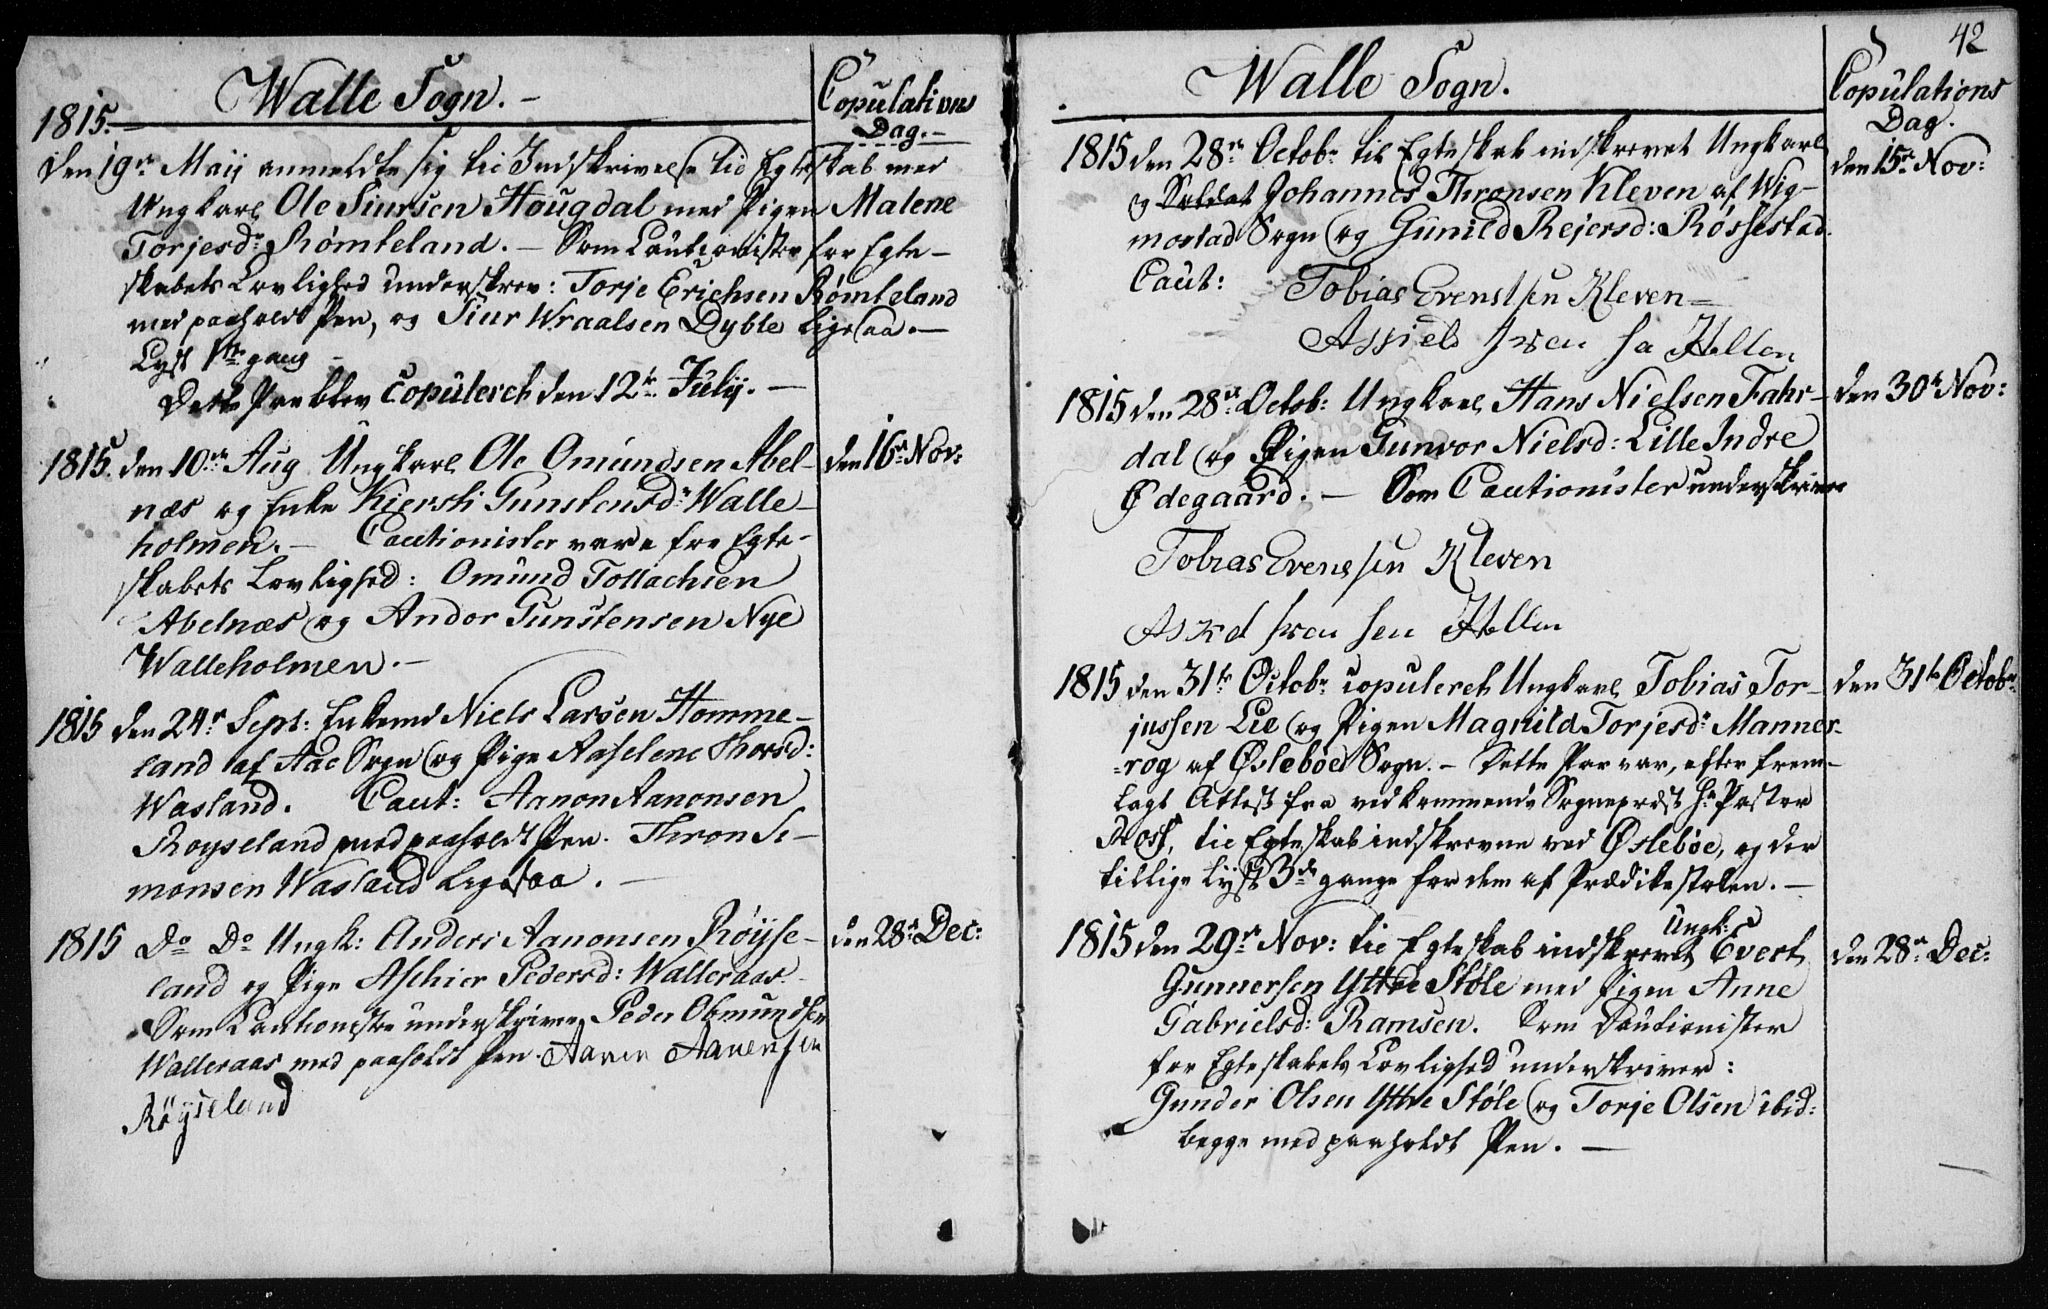 Walle Sogn. -
Copulations
Dag. -
1815. -
den 19de Maij anmeldte sig til Indskrivelse til Egteskab med
Ungkarl Ole Siursen Hougdal med Pigen Malene
Torjesdr Römteland. - Som Cautionister for Egte-
skabets Lovlighed underskrev: Torje Erichsen Römteland
med paaholdt Pen, og Siur Wraalsen Dyble ligesaa. -
Lyst 1ste gang -
Dette Par blev copuleret den 12te Julij. -
1815. den 10de Aug Ungkarl Ole Omundsen Abel-
næs og Enke Kiersti Gunstensdr Walle-
holmen. - Cautionister vare for Egte-
skabets Lovlighed: Omund Tollachsen
Abelnæs og Andor Gunstensen Nye
Walleholmen. -
den 16de Nov:
1815 den 24de Sept: Enkemd Niels Larsen Homme-
land af Aae Sogn og Pige Aaselene Thorsd:
Wasland. Caut: Aanon Aanonsen
Royseland med paaholdt Pen. Thron Si-
monsen Wasland ligesaa. -
1815 Do Do Ungk: Anders Aanonsen Röysse-
land og Pige Aschier Pedersd: Walleraas. -
Som Cautionister underskriver Peder Obmundsen
Walleraas med paaholdt Pen. Aanen Aanensen
Röyseland
den 28de Dec:
42
Walle Sogn.
Copulations
Dag.
1815 den 28de Octobr til Egteskab indskrevet Ungkarl
og Soldat Johannes Thronsen Kleven af Wig-
mostad Sogn og Gunild Rejersd: Røssestad.
Caut: Tobias Evensen Kleven -
Hellen
den 15de Nov:
1815 den 28de Octob: Ungkarl Hans Nielsen Fahr-
dal og Pigen Gunvor Nielsd: Lille Indre
Ødegaard. - Som Cautionister underskriver
Tobias Evensen Kleven
Hellen
den 30te Nov:
1815 den 31te Octobr copuleret Ungkarl Tobias Tor-
jussen Lie og Pigen Magnild Torjesdr Manner-
=rog af Øslebøe Sogn. - Dette Par var, efter frem-
lagt Attest fra vedkommende Sogneprest Hr Pastor
Ross, til Egteskab indskrevne ved Øslebøe, og der
tillige lyst 3de gange for dem af Prædikestolen. -
den 31te Octobr
1815 den 29de Nov: til Egteskab indskrevet Ungk: Evert
Gunnersen Yttre Støle med Pigen Anne
Gabrielsd: Ramsen. Som Cautionister
for Egteskabets Lovlighed underskriver:
Gunder Olsen Yttre Støle og Torje Olsen ibid:
begge med paaholdt Pen. -
den 28de Dec: